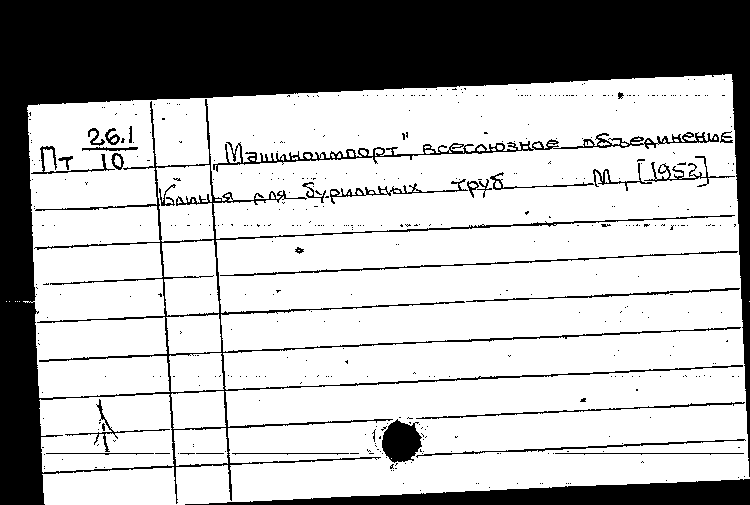 Пт 26.1/10
„Машиноимпорт", всесоюзное объединение
Клинья для бурильных труб М, [1952]